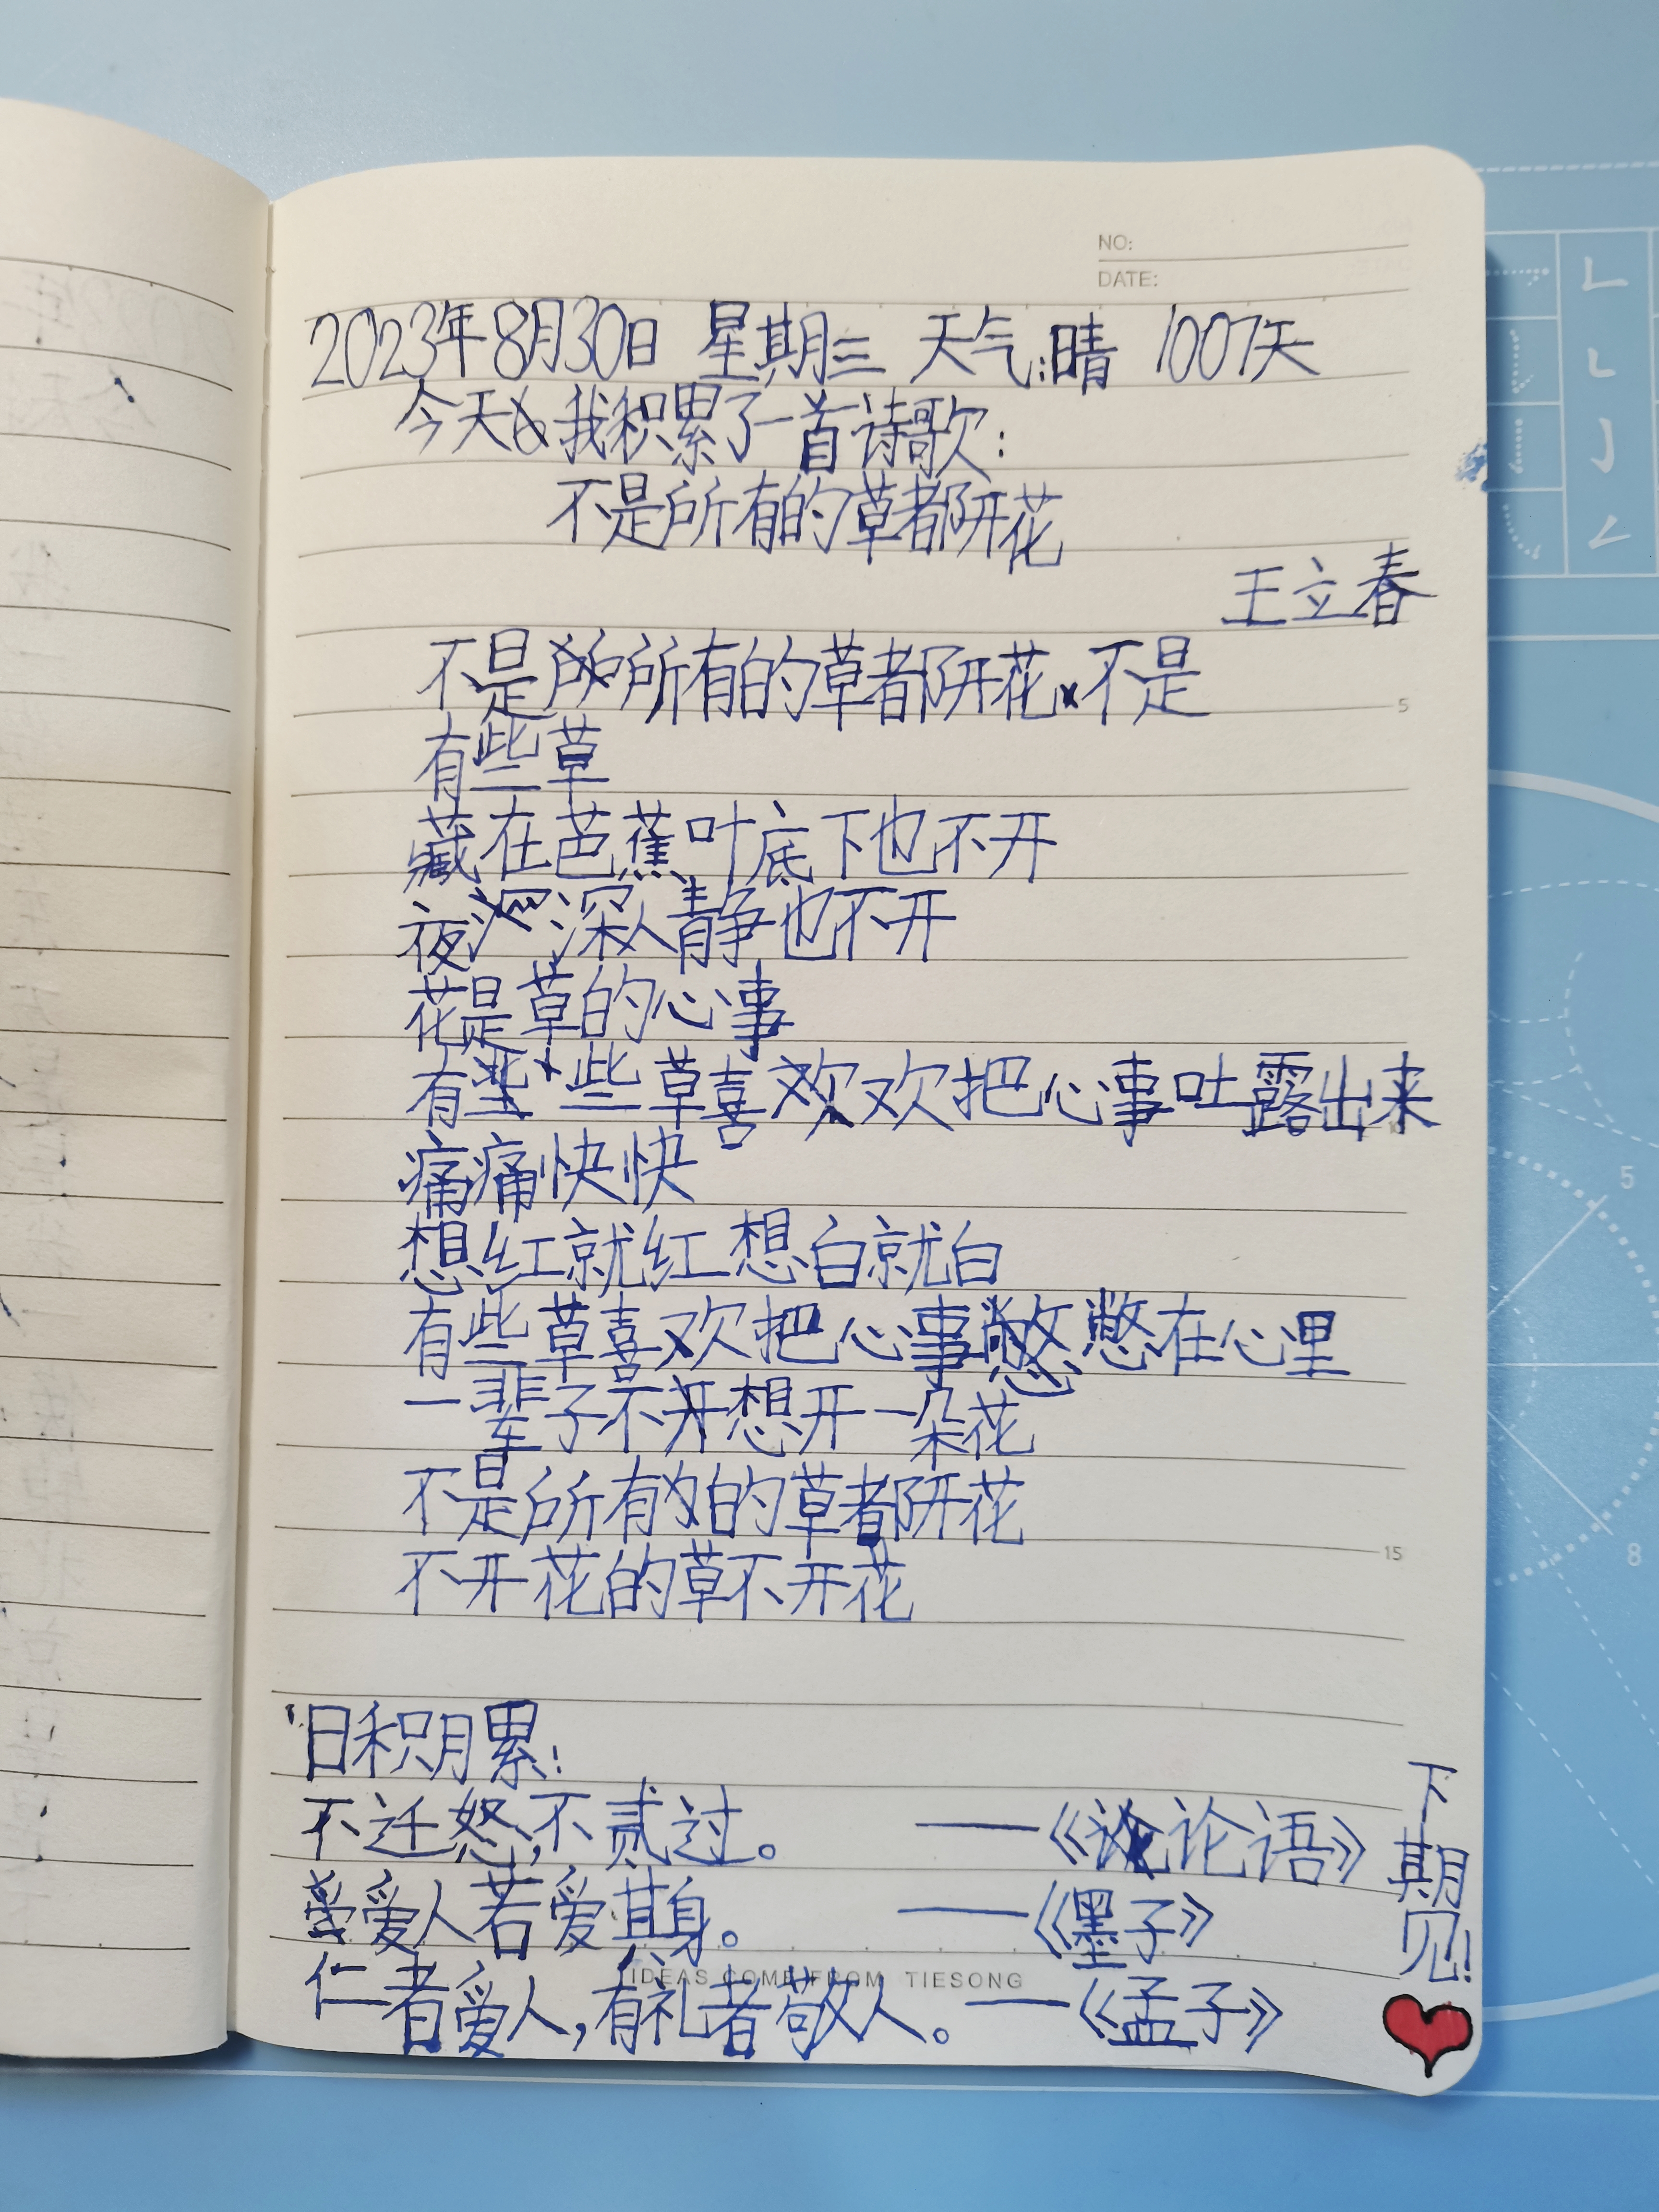 NO:
DATE:
2023年8月30日 星期三 天气:晴 1007天
今天我积累了一首诗歌:
不是所有的草都开花
王立春
不是所有的草都开花 不是
有些草
藏在芭蕉叶底下也不开
夜深人静也不开
花是草的心事
有些草喜欢把心事吐露出来
痛痛快快
想红就红 想白就白
有些草喜欢把心事憋在心里
一辈子不想开一朵花
不是所有的草都开花
不开花的草不开花
日积月累:
不迁怒,不贰过。 ——《论语》
爱人若爱其身。 ——《墨子》
仁者爱人,有礼者敬人。——《孟子》
下期见!
IDEAS COME FROM TIESONG
5
15
5
8